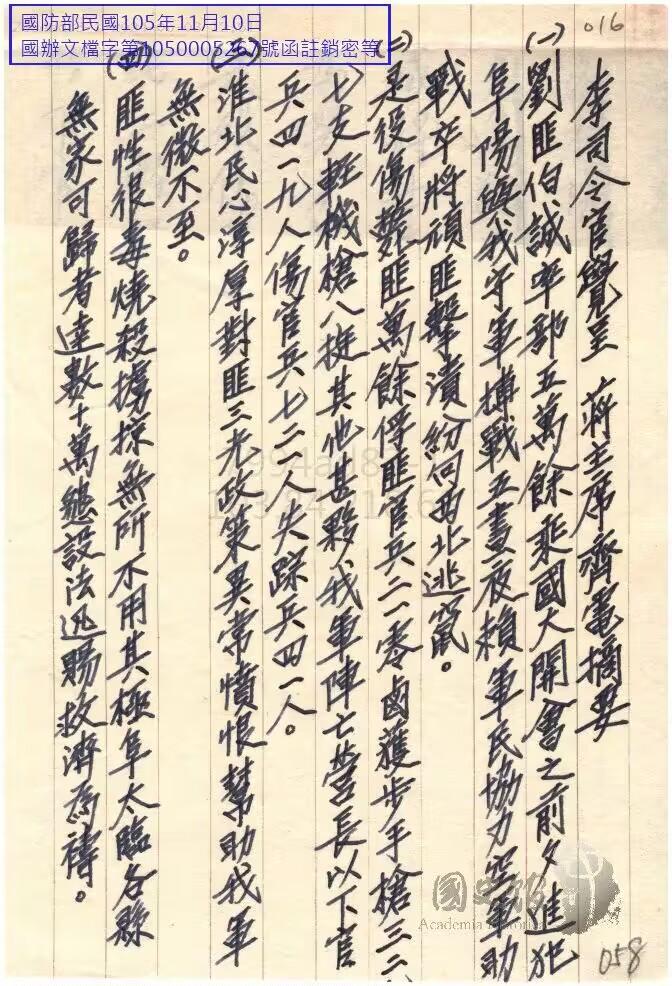 國防部民國105年11月10日
國辦文檔字第1050005267號函註銷密等
016
李司令官覺呈 蔣主席齊電摘要
(一)劉匪伯誠率部五萬餘乘國大開會之前夕進犯
阜陽與我守軍搏戰五晝夜賴軍民協力空軍助
戰卒將頑匪擊潰紛向西北逃竄。
(二)是役傷斃匪萬餘俘匪官兵二一零鹵獲步手槍三二
七支輕機槍八挺其他甚夥我軍陣亡營長以下官
兵四一九人傷官兵七二一人失踪兵四一人。
(三)淮北民心淳厚對匪三光政策異常憤恨幫助我軍
無微不至。
(四)匪性很毒燒殺擄掠無所不用其極阜太臨各縣
無家可歸者達數十萬懇設法迅賜救濟為禱。
國史館
Academia Historica
058